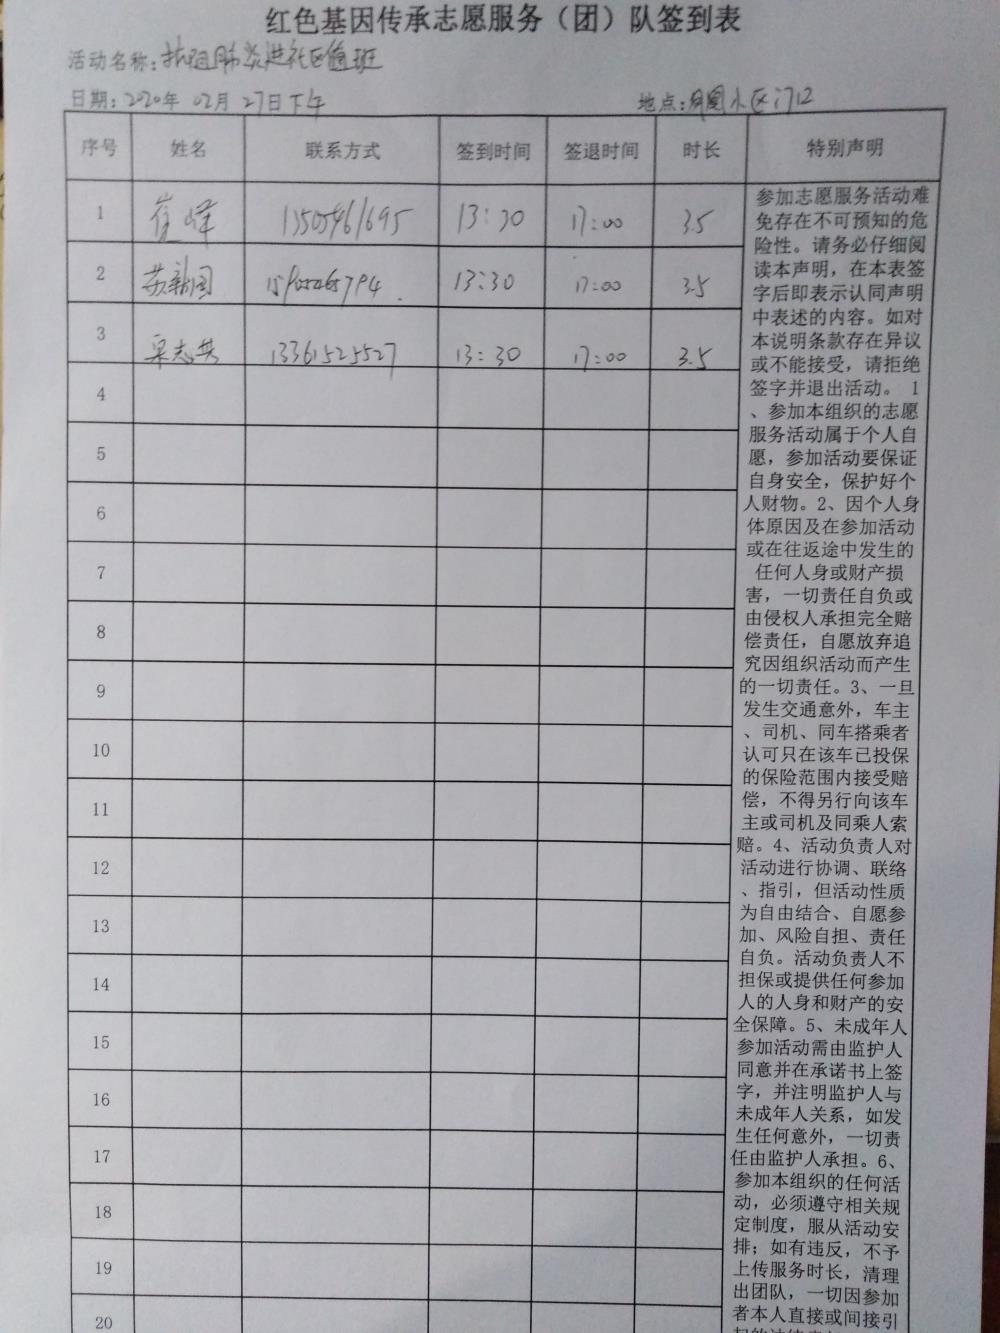 红色基因传承志愿服务（团）队签到表
活动名称：抗阻肺炎进社区值班
日期：2020年 02月 27日下午 地点：小区门口
序号 姓名 联系方式 签到时间 签退时间 时长 特别声明
1 崔峰 13505461695 13:30 17:00 3.5
2 苏新国 13:30 17:00 3.5
3 栗志共 13361525527 13:30 17:00 3.5
4
5
6
7
8
9
10
11
12
13
14
15
16
17
18
19
20
参加志愿服务活动难
免存在不可预知的危
险性。请务必仔细阅
读本声明，在本表签
字后即表示认同声明
中表述的内容。如对
本说明条款存在异议
或不能接受，请拒绝
签字并退出活动。 1
、参加本组织的志愿
服务活动属于个人自
愿，参加活动要保证
自身安全，保护好个
人财物。2、因个人身
体原因及在参加活动
或在往返途中发生的
任何人身或财产损
害，一切责任自负或
由侵权人承担完全赔
偿责任，自愿放弃追
究因组织活动而产生
的一切责任。3、一旦
发生交通意外，车主
、司机、同车搭乘者
认可只在该车已投保
的保险范围内接受赔
偿，不得另行向该车
主或司机及同乘人索
赔。4、活动负责人对
活动进行协调、联络
、指引，但活动性质
为自由结合、自愿参
加、风险自担、责任
自负。活动负责人不
担保或提供任何参加
人的人身和财产的安
全保障。5、未成年人
参加活动需由监护人
同意并在承诺书上签
字，并注明监护人与
未成年人关系，如发
生任何意外，一切责
任由监护人承担。6、
参加本组织的任何活
动，必须遵守相关规
定制度，服从活动安
排；如有违反，不予
上传服务时长，清理
出团队，一切因参加
者本人直接或间接引